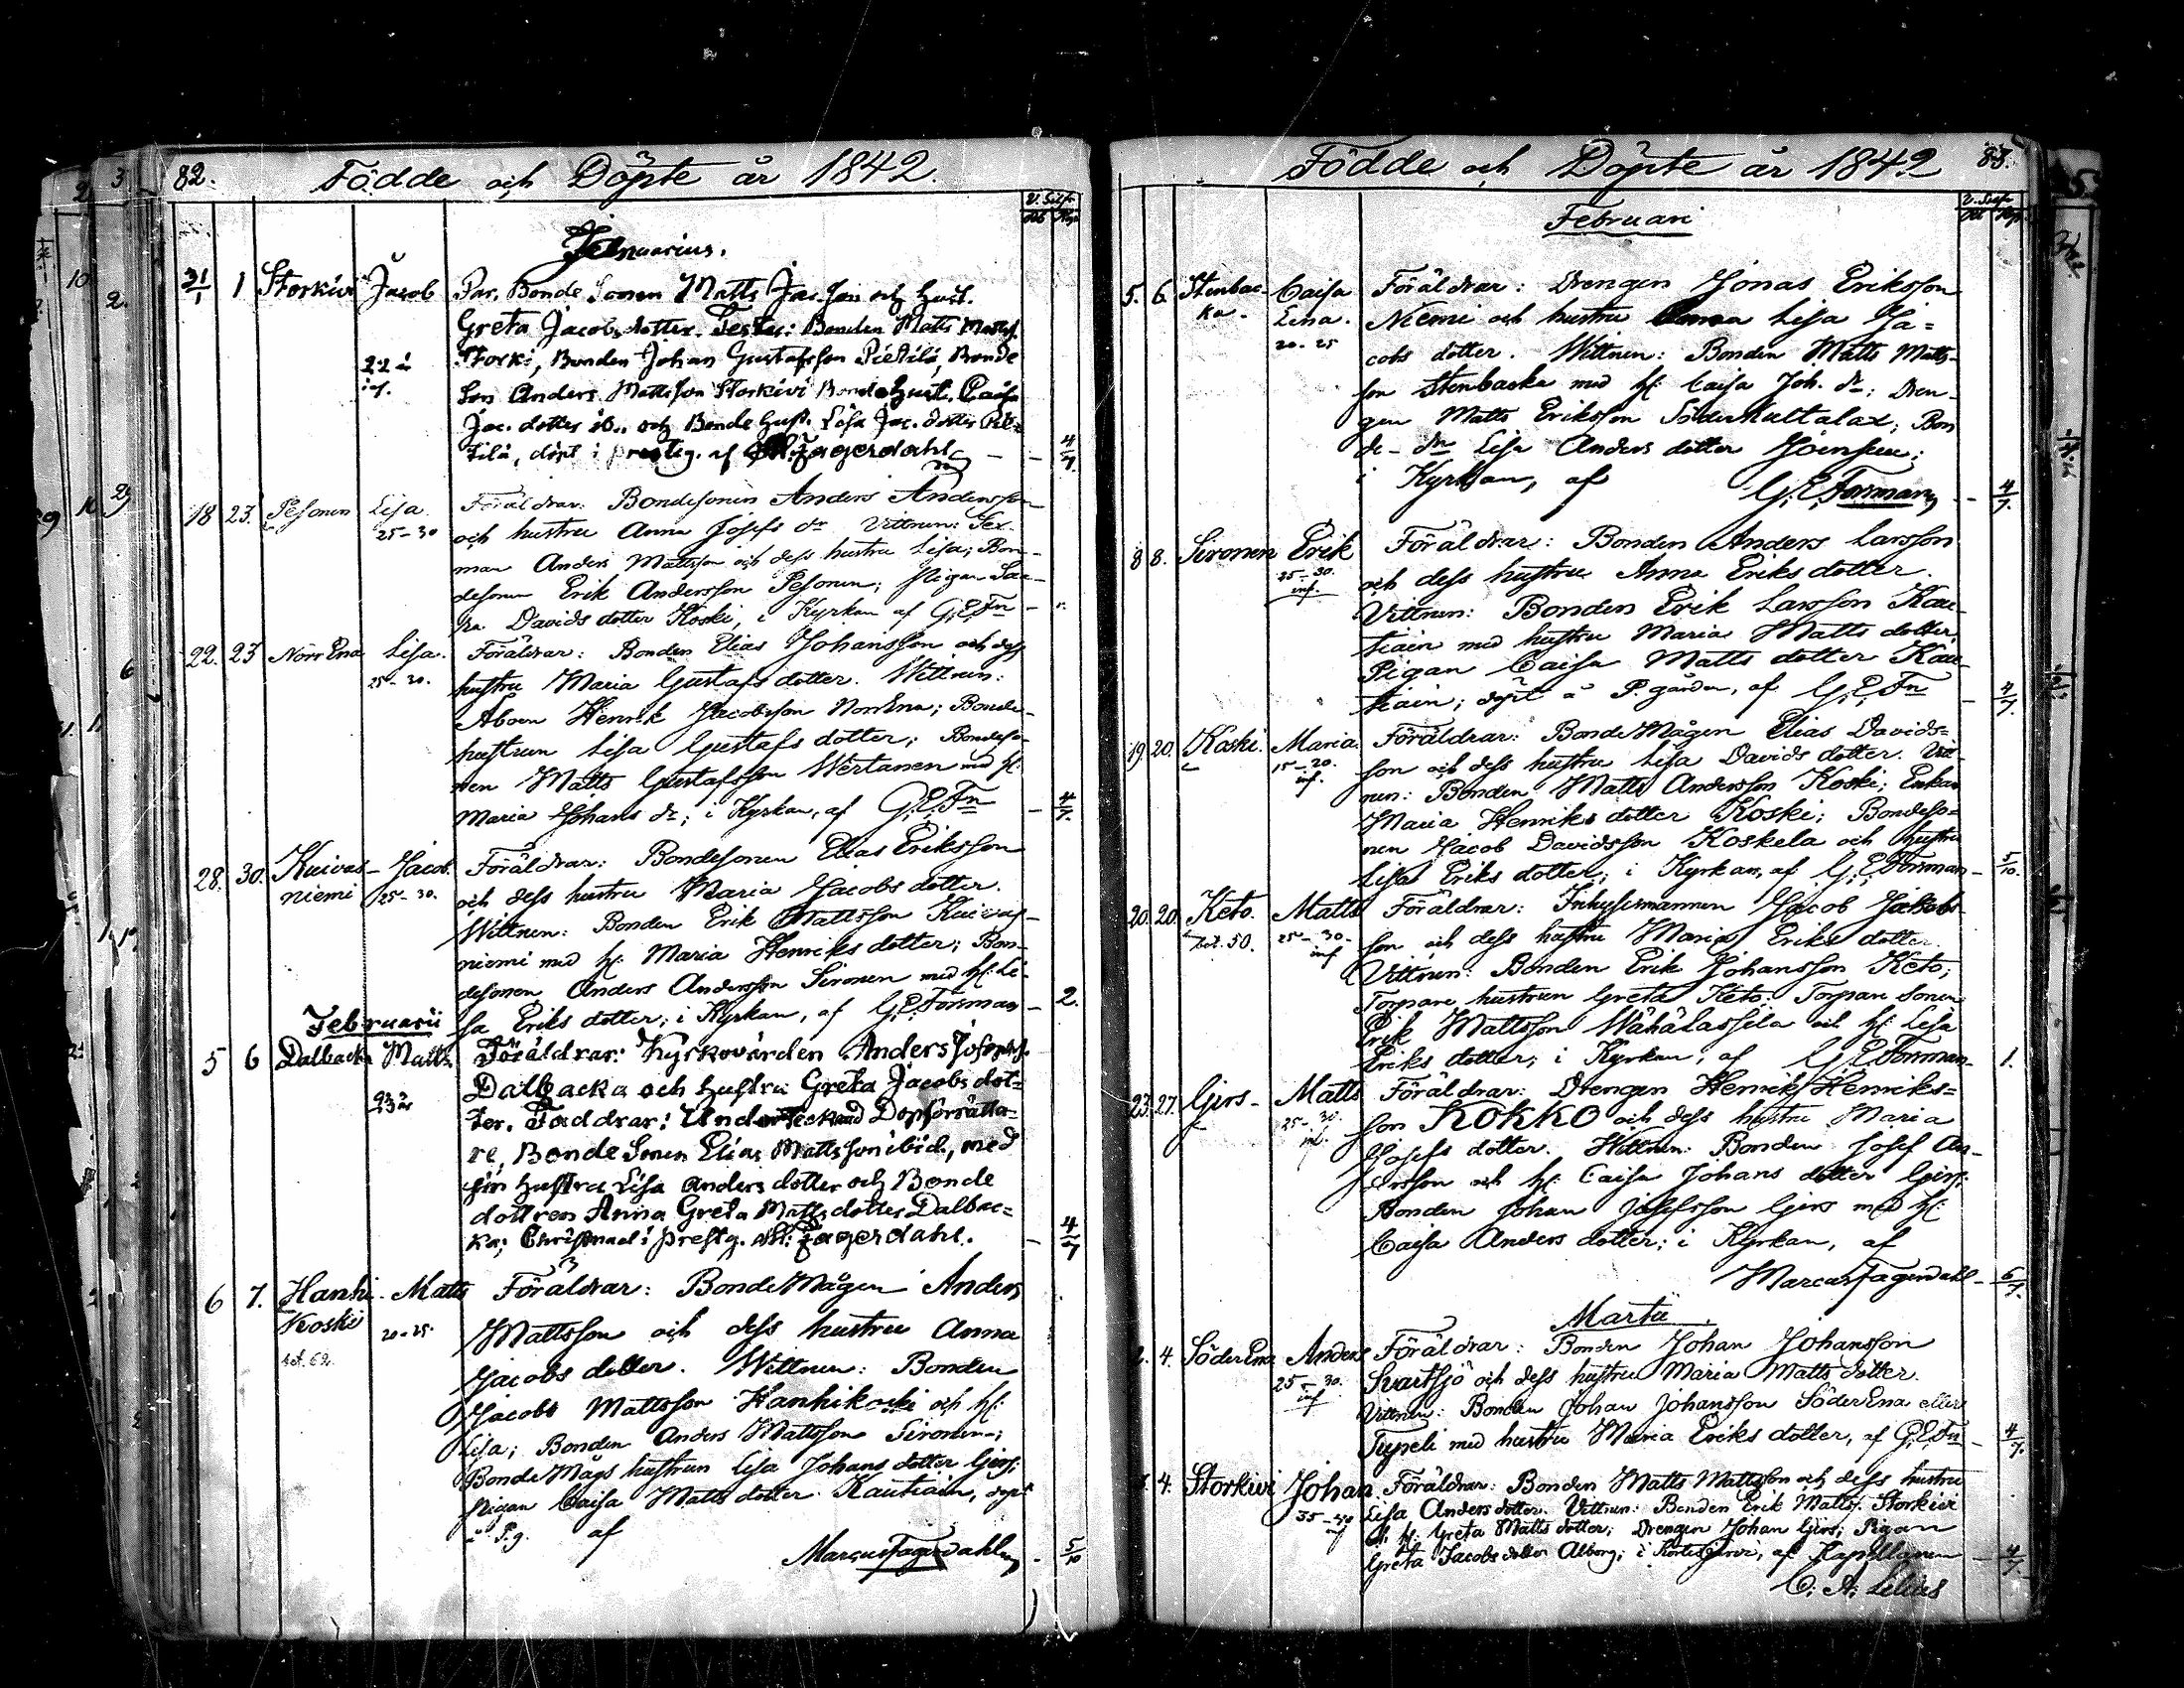 82. Födde och Döpte år 1842.
Januarius.
31/1 1 Storkivi Jacob Par. Bonde Sonen Matts Jac. son och hust.
Greta Jacobs dotter. Testes: Bonden Matts Matts.
22 år Storki, Bonden Johan Gustafsson Pietilä, Bonde
Son Anders Mattsson Storkivi Bonde hust. Caisa
Jac. dotter ib. och Bonde hust. Lisa Jac. dotter Pie-
tilä, döpt i prestg. af Fagerdahl 4/7
18 23. Pesonen Lisa Föräldrar: Bondesonen Anders Andersson
25-30 och hustru Anna Josefs dr Vittnen: Sex-
man Anders Mattsson och dess hustru Lisa; Bon-
desonen Erik Andersson Pesonen; Pigan Sa-
ra Davids dotter Koski, i Kyrkan af G.E.Fn
22. 23 Norr Ena Lisa. Föräldrar: Bonden Elias Johansson och dess
25-30. hustru Maria Gustafs dotter. Wittnen:
Aboen Henrik Jacobsson NorrEna; Bonde-
hustrun Lisa Gustafs dotter; Bondeso-
nen Matts Gustafsson Wertanen med h:
Maria Johans dr; i Kyrkan, af G.E.Fn 4/7.
28. 30. Kuivas- Jacob. Föräldrar: Bondesonen Elias Eriksson
niemi 25-30. och dess hustru Maria Jacobs dotter.
Wittnen: Bonden Erik Mattsson Kuivas-
niemi med h: Maria Henriks dotter; Bon-
desonen Anders Andersson Sironen med h: Li-
sa Eriks dotter; i Kyrkan, af G.E.Forsman 2.
Februarii
5 6 Dalbacka Matts Föräldrar: Kyrkovärden Anders Josephs.
Dalbacka och hustru Greta Jacobs dot-
ter. Faddrar: Undertecknad Dopförrätta-
re, Bonde Sonen Elias Mattsson ibid., med
sin hustru Lisa Anders dotter och Bonde
dottren Anna Greta Matts dotter Dalbac-
ka; Christnad i prestg. af Fagerdahl. 4/7
6 7. Hanhi- Matts Föräldrar: BondeMågen Anders
Koski 20-25. Mattsson och dess hustru Anna
Jacobs dotter. Wittnen: Bonden
Jacob Mattsson Hanhikoski och h:
Lisa; Bonden Anders Mattsson Sironen;
BondeMågs hustrun Lisa Johans dotter Girs;
Pigan Caisa Matts dotter Kautiain, döpt
i P.g. af
Marcus Fagerdahl 5/10
Födde och Döpte år 1842 83.
Februari
5. 6. Stenbac- Caisa Föräldrar: Drengen Jonas Eriksson
ka. Lena. Niemi och hustru Anna Lisa Ja-
20-25 cobs dotter. Wittnen: Bonden Matts Matts-
son Stenbacka med h: Caisa Joh. dr; Dren-
gen Matts Eriksson Söderkultalax; Bon
de-dr Lisa Anders dotter Joinsuu;
i Kyrkan, af G.E.Forsman 4/7.
8 8. Sironen Erik Föräldrar: Bonden Anders Larsson
25-30. och dess hustru Anna Eriks dotter.
inf. Vittnen: Bonden Erik Larsson Kau-
tiain med hustru Maria Matts dotter,
Pigan Caisa Matts dotter Kau-
tiain; döpt å P. gården, af G.E.Fn 4/7.
19. 20. Koski. Maria. Föräldrar: BondeMågen Elias Davids-
15-20. son och dess hustru Lisa Davids dotter. Vitt-
inf. nen: Bonden Matts Andersson Koski; Enkan
Maria Henriks dotter Koski; Bondeso-
nen Jacob Davidsson Koskela och hustru
Lisa Eriks dotter; i Kyrkan, af G.E.Forsman 5/10.
20. 20. Keto. Matts Föräldrar: Inhysesmannen Jacob Jakobs-
50. 25-30- son och dess hustru Maria Eriks dotter.
inf Vittnen: Bonden Erik Johansson Keto;
Torpare hustrun Greta Keto; Torpare Sonen
Erik Mattsson Wähälassila och h: Lisa
Eriks dotter; i Kyrkan, af G.E.Forsman 1.
23. 27. Girs- Matts Föräldrar: Drengen Henrik Henriks-
25-30. son KOKKO och dess hustru Maria
inf. Josefs dotter. Wittnen: Bonden Josef An-
dersson och h: Caisa Johans dotter Girs;
Bonden Johan Josefsson Girs med h:
Caisa Anders dotter; i Kyrkan, af
Marcus Fagerdahl 6/7.
Martii
2. 4. SöderEna Anders Föräldrar: Bonden Johan Johansson
25-30. Svartsjö och dess hustru Maria Matts dotter.
inf Vittnen: Bonden Johan Johansson SöderEna eller
Typeli med hustru Maria Eriks dotter, af G.E.Fn 4/7.
4. Storkivi Johan Föräldrar: Bonden Matts Mattsson och dess hustru
35-40 Lisa Anders dotter. Vittnen: Bonden Erik Matts. Storkivi
inf h: Greta Matts dotter; Drengen Johan Girs; Pigan
Greta Jacobs dotter Alborg; i Kortesjärvi, af Kapellanen 4/7.
C. A. Lilius